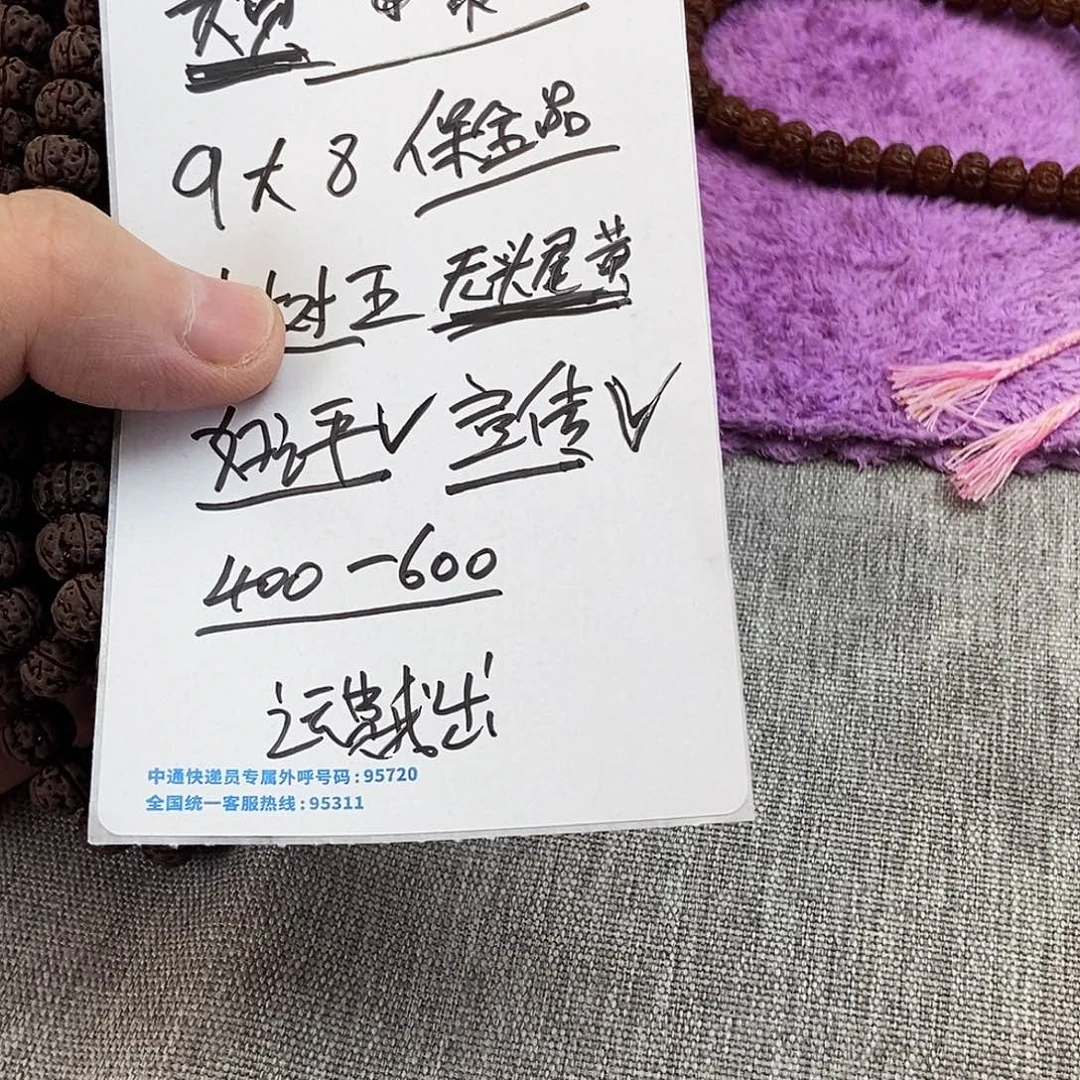 9大8 保金品
树王 无头尾黄
好评√ 宣传√
400-600
运费我出
中通快递员专属外呼号码:95720
全国统一客服热线:95311